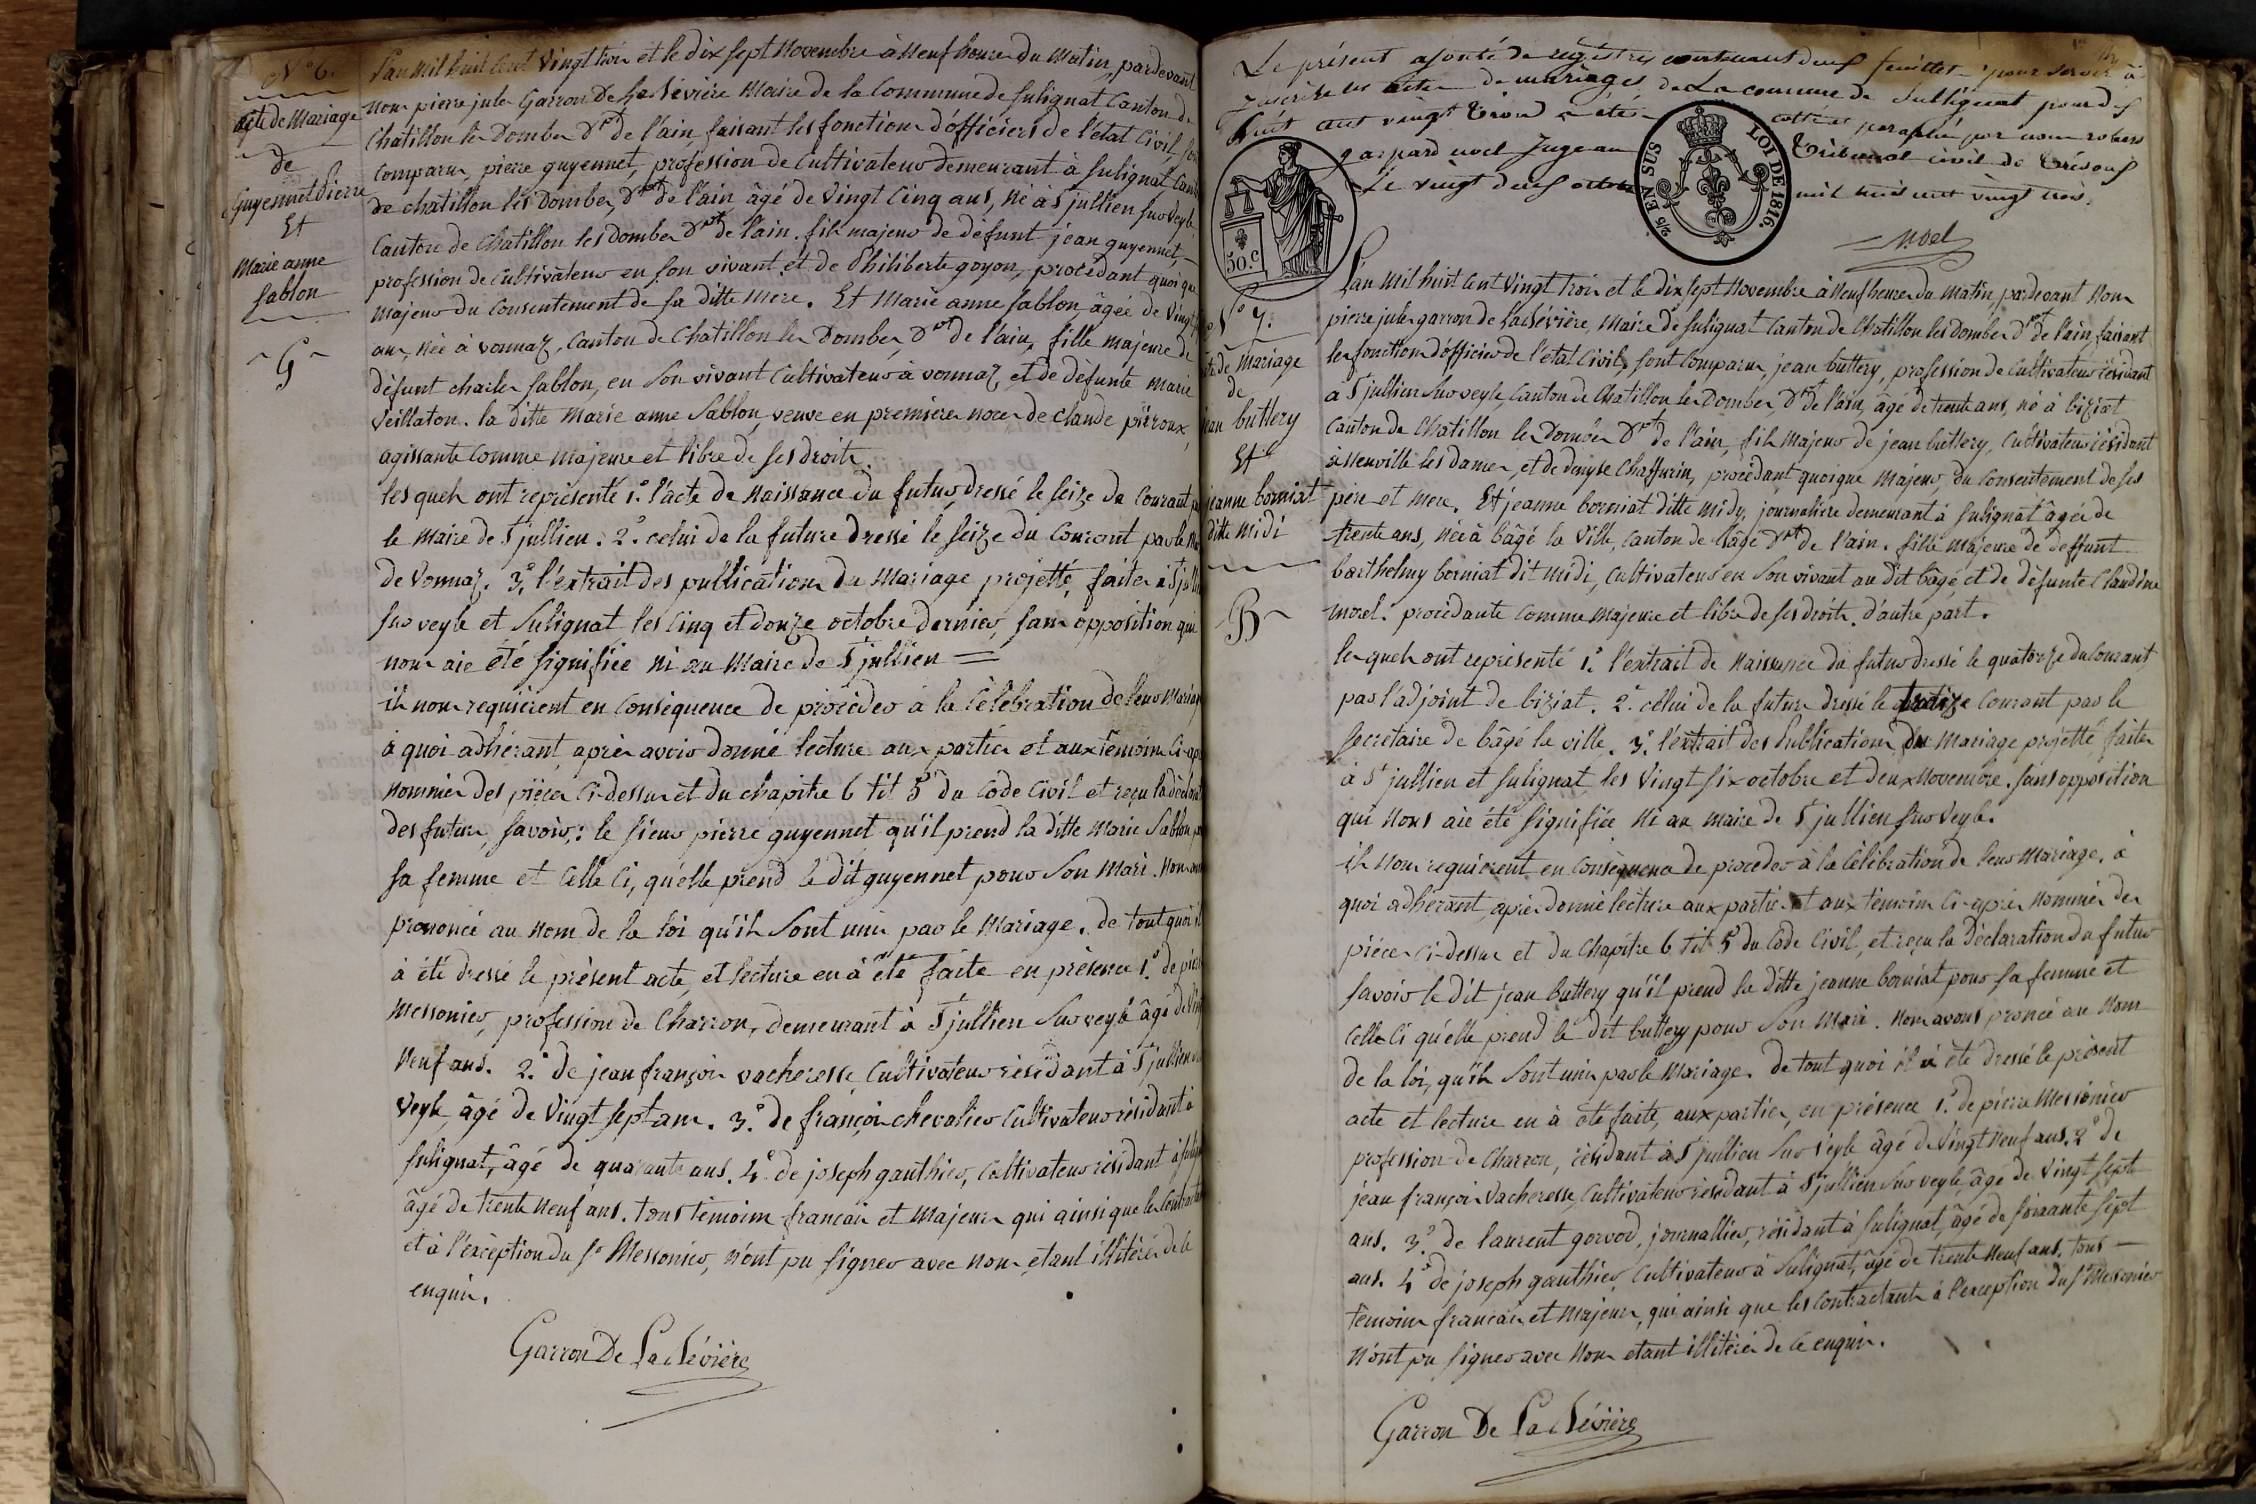 N° 6.
acte de Mariage
de
Guyennet Pierre
Et
Marie anne
Sablon
G
L'an Mil huit Cent Vingt trois et le dix sept Novembre à Neuf heures du Matin, pardevant
Nous pierre jules Garron De La Sévière Maire de la Commune de Sulignat Canton de
Chatillon les Dombes D.pt de l'ain, faisant les fonctions d'officiers de l'état Civil,
Comparus, pierre guyennet, profession de Cultivateur demeurant à Sulignat Canton
de chatillon lès Dombes, D.pt de l'ain âgé de Vingt Cinq ans, Né à S.t jullien sur Veyle
Canton de Chatillon les Dombes D.pt de l'ain. fils majeur de défunt jean guyennet,
profession de Cultivateur en son vivant et de Philiberte goyon, procédant quoique
majeur du Consentement de sa ditte Mere. Et Marie anne Sablon, âgée de Vingt
ans, Née à Vonnaz, Canton de Chatillon les Dombes, D.pt de l'ain, fille majeure de
défunt charles Sablon, en Son vivant Cultivateur à vonnaz, et de défunte Marie
Veillaton. la ditte Marie anne Sablon, veuve en premieres noces de Claude pirroux,
agissante Comme Majeure et libre de ses droits.
les quels ont représenté 1.° l'acte de Naissance du futur, dressé le Seize du Courant
le Maire de S.t jullien. 2.° celui de la future dressé le Seize du Courant par le
de Vonnaz. 3.° l'extrait des publications du Mariage projetté, faites à S.t jullien
sur veyle et Sulignat les Cinq et douze octobre dernier, sans opposition qui
nous aie été signifiée Ni au Maire de S.t jullien =
ils nous requièrent en Conséquence de procéder à la Célébration de leur Mariage
à quoi adhérant, après avoir donné lecture aux parties et aux témoins Ci-après
Nommés des pièces Ci-dessus et du chapitre 6 tit 5.° du Code Civil et reçu la déclaration
des futurs, Savoir: le sieur pierre guyennet qu'il prend la ditte Marie Sablon pour
sa femme et Celle Ci, qu'elle prend le dit guyennet, pour Son Mari. Nous avons
prononcé au Nom de la loi qu'ils Sont unis par le Mariage. de tout quoi il
à été dressé le présent acte, et lecture en à été faite en présence 1.° de pierre
Messonier, profession de Charron, demeurant à S.t jullien Sur veyle âgé de Vingt
Neuf ans. 2.° de jean françois vacheresse Cultivateur résidant à S.t jullien sur
Veyle, âgé de Vingt Sept ans. 3.° de françois chevalier Cultivateur résidant à
Sulignat, âgé de quarante ans. 4.° de joseph gauthier, Cultivateur résidant à Sulignat
âgé de trente Neuf ans. tous témoins francais et Majeurs qui ainsi que les Contractants
et à l'exception du S.r Messonier, N'ont pu Signer avec Nous, etant illitérés de ce
enquis.
Garron De La Sévière
Le présent ajouté de régistres contenant deux feuillets pour servir à
inscrire les actes de mariages de la commune de Sullignat pour dix
huit cent vingt trois a été cotté et paraphé par nous robert
gaspard noel Juge au Tribunal civil de Trévoux
Le vingt deux octobre mil huit cent vingt trois.
Noel
50.C
2/5 EN SUS
LOI DE 1816.
N° 7.
acte de Mariage
de
jean buttery
Et
jeanne borniat
ditte Midi
B
L'an Mil huit Cent Vingt trois et le dix sept Novembre à Neuf heures du Matin, pardevant Nous
pierre jules garron de La Sévière, Maire de Sulignat Canton de Chatillon les Dombes D.pt de l'ain, faisant
les fonctions d'officier de l'état Civil, sont Comparus jean buttery, profession de Cultivateur résidant
à S.t jullien Sur veyle, Canton de Chatillon les Dombes, D.pt de l'ain, âgé de trente ans, né à biziat
Canton de Chatillon les Dombes D.pt de l'ain, fils Majeur de jean buttery, Cultivateur résidant
à Neuville les dames, et de denyse Chaffurin, procédant quoique Majeur, du Consentement de ses
père et Mere. Et jeanne borniat ditte Midy, journalière demeurant à Sulignat âgée de
trente ans, née à bâgé la Ville, Canton de bâgé D.pt de l'ain. fille Majeure de deffunt
barthelmy borniat dit midi, Cultivateur en Son vivant au dit bâgé et de défunte Claudine
morel. procédante Comme Majeure et libre de ses droits. d'autre part.
les quels ont représenté 1.° l'extrait de Naissance du futur dressé le quatorze du Courant
par l'adjoint de biziat. 2.° celui de la future dressé le treize Courant par le
Secretaire de bâgé la ville. 3.° l'extrait des Publications du Mariage projetté faites
à S.t jullien et Sulignat les Vingt Six octobre et deux Novembre. sans opposition
qui Nous aie été signifiée Ni au maire de S.t jullien sur Veyle.
ils Nous requièrent en Conséquence de procéder à la Célébration de leur Mariage, à
quoi adhérant, après donné lecture aux parties et aux témoins Ci-après Nommés des
pièces Ci-dessus et du Chapitre 6 tit 5.° du Code Civil, et reçu la Déclaration du futur
Savoir le dit jean buttery qu'il prend la ditte jeanne borniat pour sa femme et
Celle Ci qu'elle prend le dit buttery pour Son Mari. Nous avons proncé au Nom
de la loi, qu'ils Sont unis par le Mariage. De tout quoi il à été dressé le présent
acte et lecture en à été faite, aux parties, en présence 1.° de pierre Messonier
profession de Charron, résidant à S.t jullien Sur Veyle âgé de Vingt Neuf ans. 2.° de
jean françois Vacheresse, Cultivateur résidant à S.t jullien Sur veyle, âgé de Vingt Sept
ans. 3.° de laurent gorvod, journallier, résidant à Sulignat, âgé de soixante Sept
ans. 4.° de joseph gauthier, Cultivateur à Sulignat, âgé de trente Neuf ans. tous
témoins francais et Majeurs, qui ainsi que les Contractants à l'exception du S.r Messonier
N'ont pu Signer avec Nous étant illitérés de Ce enquis.
Garron De La Sévière